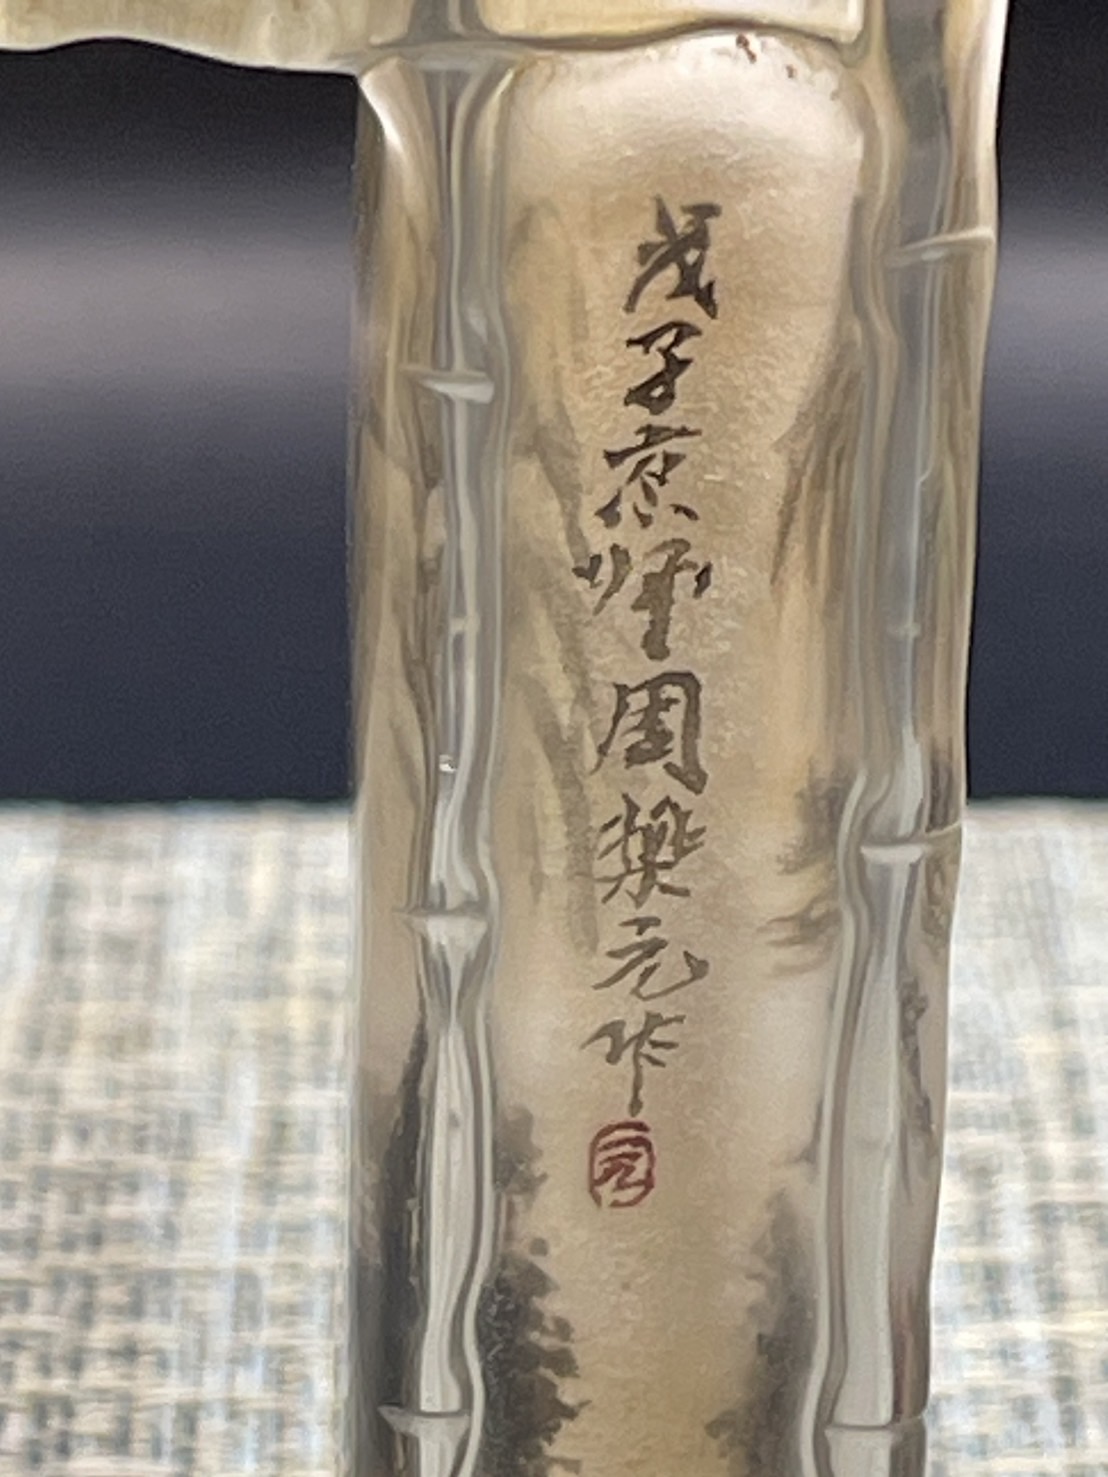 戊子京師周樂元作